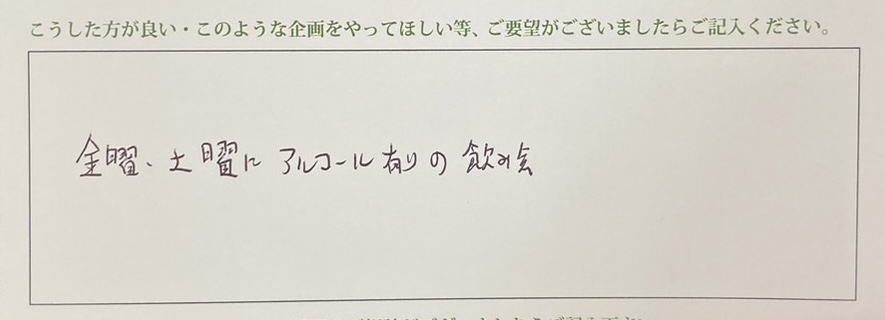 こうした方が良い・このような企画をやってほしい等、ご要望がございましたらご記入ください。
金曜、土曜に アルコール有りの飲み会